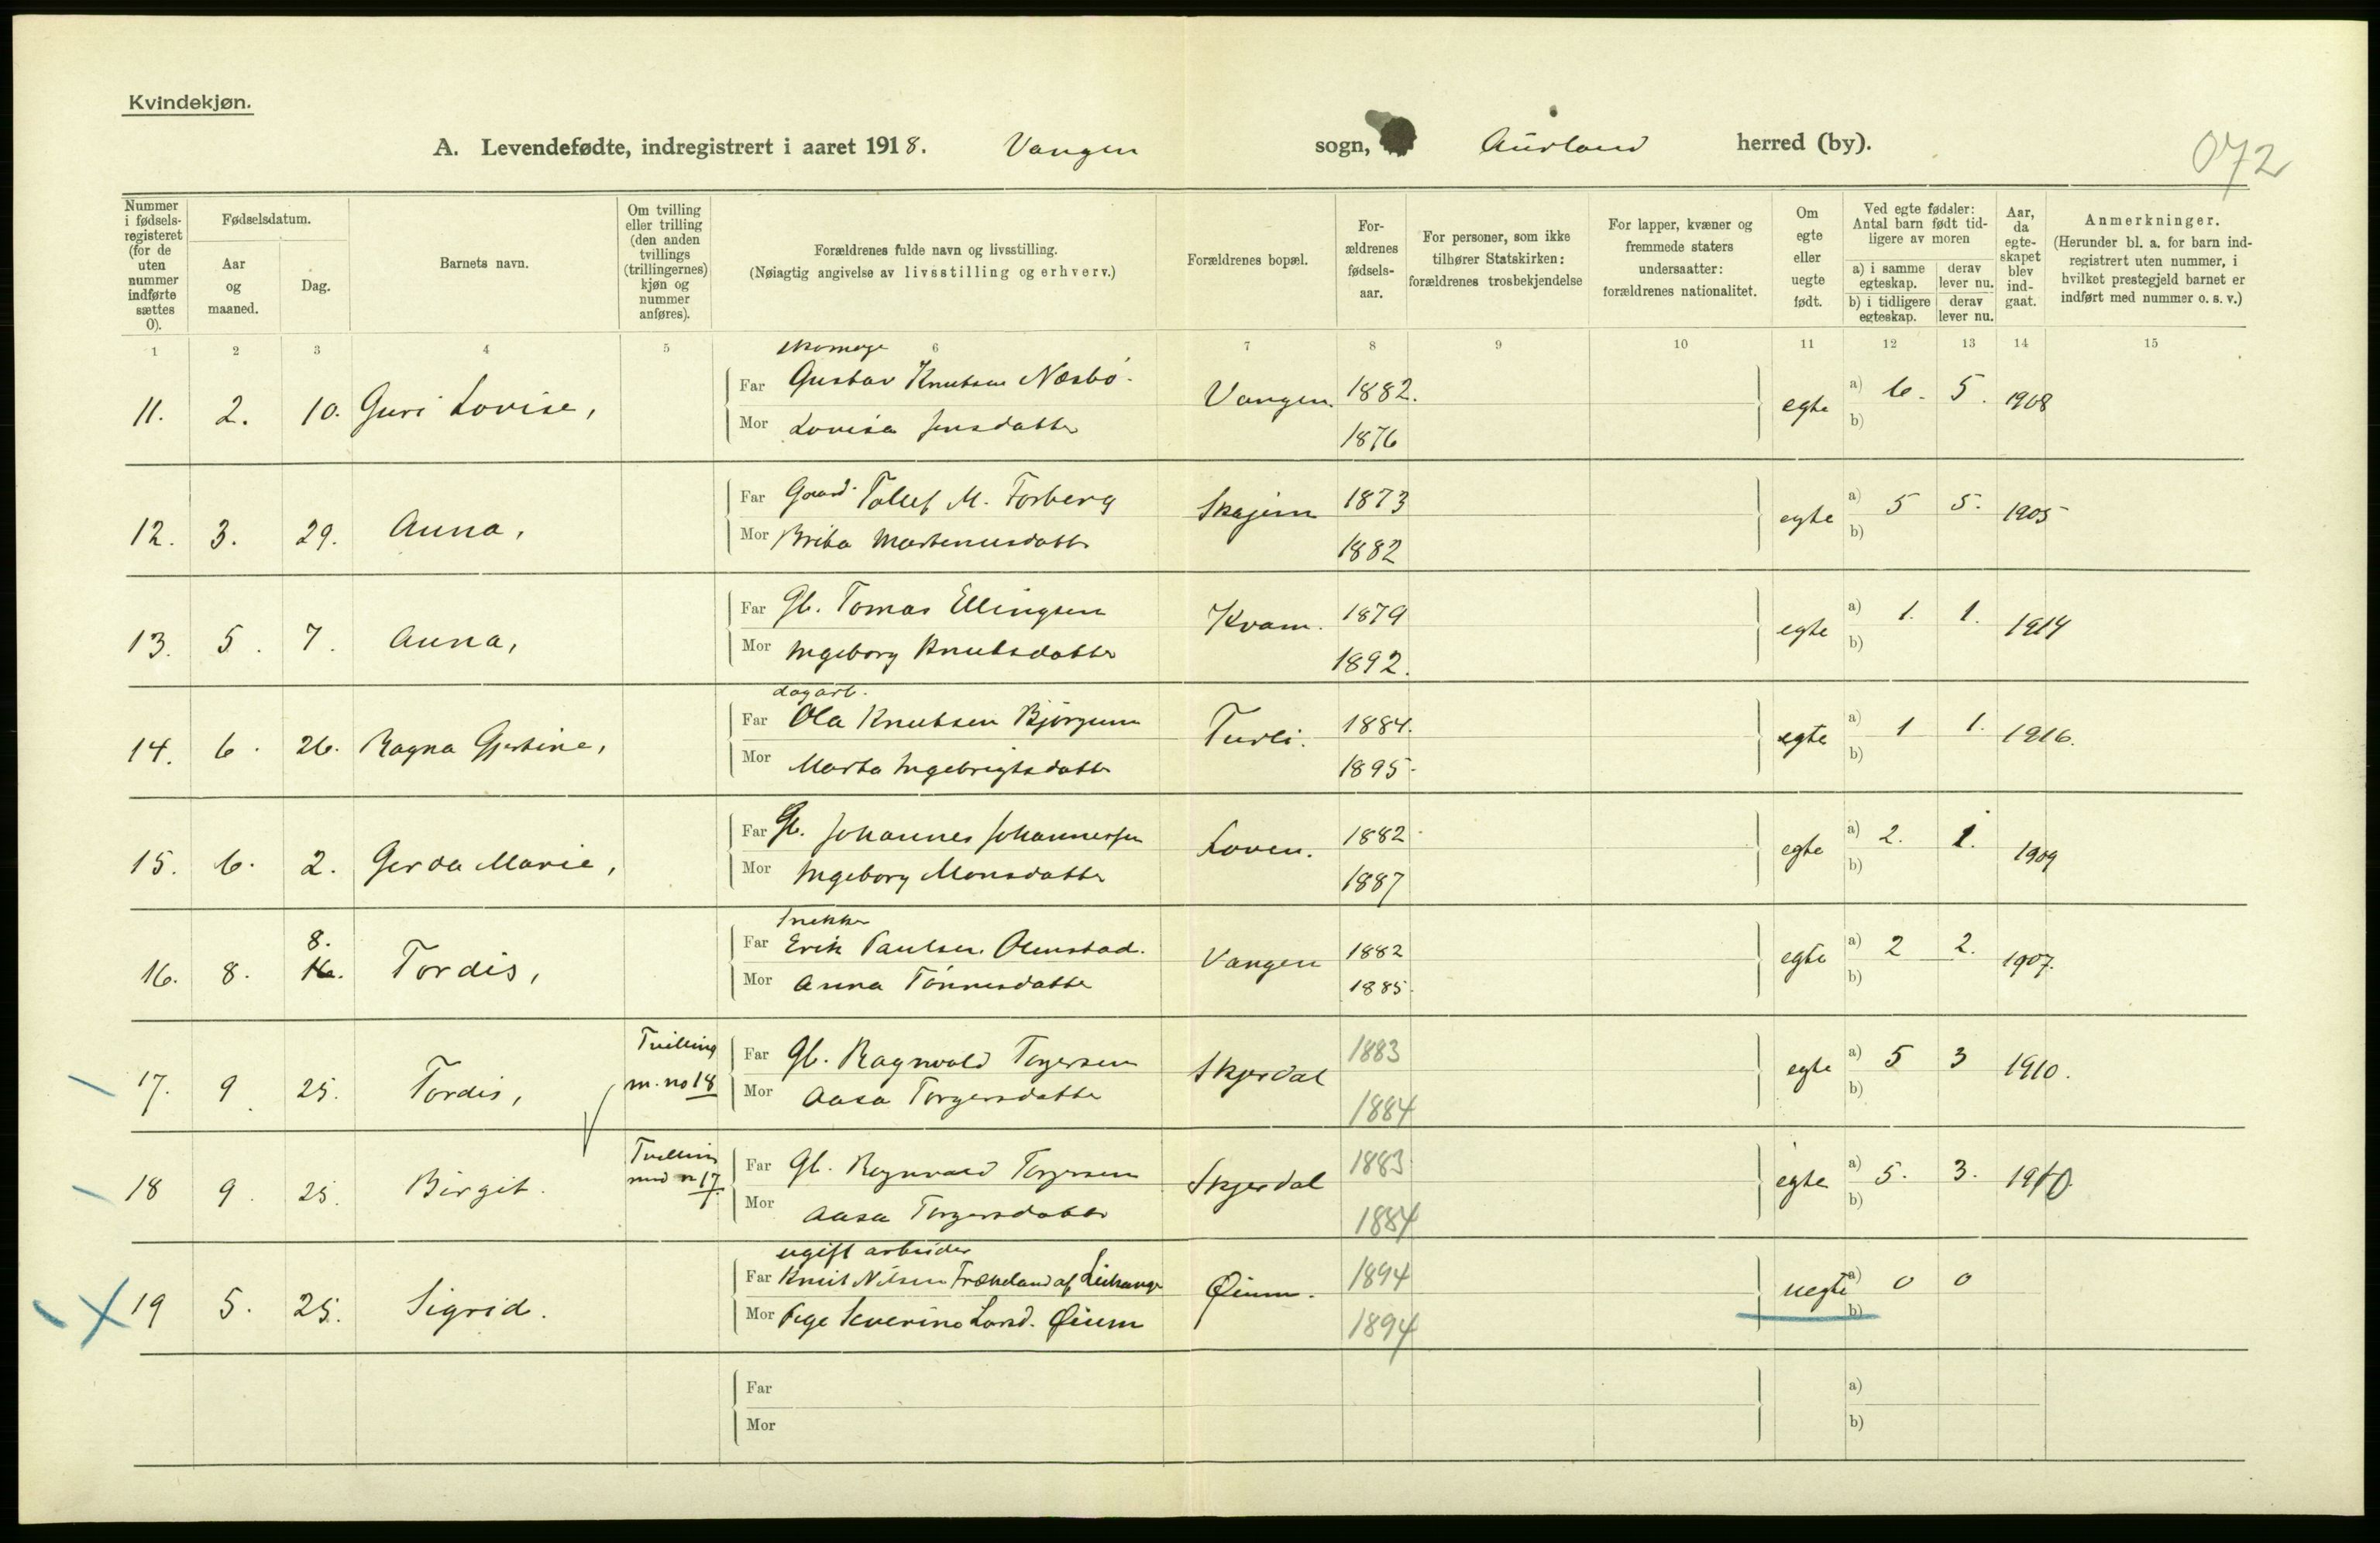 Kvindekjøn.
A. Levendefødte, indregistrert i aaret 1918. Vangen sogn, Aurland herred (by).
072
Nummer i fødsels-registeret (for de uten nummer indførte sættes 0).
Fødselsdatum.
Aar og maaned.
Dag.
Barnets navn.
Om tvilling eller trilling (den anden tvillings (trillingernes) kjøn og nummer anføres).
Forældrenes fulde navn og livsstilling.
(Nøiagtig angivelse av livsstilling og erhverv.)
Forældrenes bopæl.
For-ældrenes fødsels-aar.
For personer, som ikke tilhører Statskirken: forældrenes trosbekjendelse
For lapper, kvæner og fremmede staters undersaatter: forældrenes nationalitet.
Om egte eller uegte født.
Ved egte fødsler: Antal barn født tid-ligere av moren
a) i samme egteskap.
derav lever nu.
b) i tidligere egteskap.
derav lever nu.
Aar, da egte-skapet blev ind-gaat.
Anmerkninger.
(Herunder bl. a. for barn ind-registrert uten nummer, i hvilket prestegjeld barnet er indført med nummer o. s. v.)
1 2 3 4 5 6 7 8 9 10 11 12 13 14 15
skomager
11. 2. 10. Guri Lovise, Far Gustav Knutsen Næsbø. Vangen. 1882. egte a) 6. 5. 1908
Mor Lovisa Jensdatter 1876 b)
12. 3. 29. Anna, Far Gaard. Tollef M. Forberg Skajem 1873 egte a) 5 5. 1905
Mor Brita Martenusdatter 1882 b)
13. 5. 7. Anna, Far Gb. Tomas Ellingsen Kvam. 1879 egte a) 1. 1. 1914
Mor Ingeborg Knutsdatter 1892. b)
dagarb.
14. 6. 26. Ragna Gjertine, Far Ola Knutsen Bjørgum Turli. 1884. egte a) 1 1. 1916.
Mor Marta Ingebrigtsdatter 1895. b)
15. 6. 2. Gerda Marie, Far Gb. Johannes Johannessen Loven. 1882 egte a) 2. 1. 1909
Mor Ingeborg Monsdatter 1887 b)
snekker
8.
16. 8. 16. Tordis, Far Erik Paulsen Olmstad. Vangen 1882 egte a) 2 2. 1907.
Mor Anna Tønnesdatter 1885. b)
17. 9. 25. Tordis, Tvilling m. no 18 Far Gb. Ragnvald Torgersen Skjerdal 1883 egte a) 5 3 1910.
Mor Aasa Torgersdatter 1884 b)
18 9. 25. Birgit. Tvilling med n 17. Far Gb. Ragnvald Torgersen Skjerdal 1883 egte a) 5. 3. 1910.
Mor Aasa Torgersdatter 1884 b)
ugift arbeider
19 5. 25. Sigrid. Far Knut Nilsen Frækeland af Leikanger Øium. 1894 uegte a) 0 0
Mor Pige Severine Larsd. Øium 1894 b)
Far a)
Mor b)